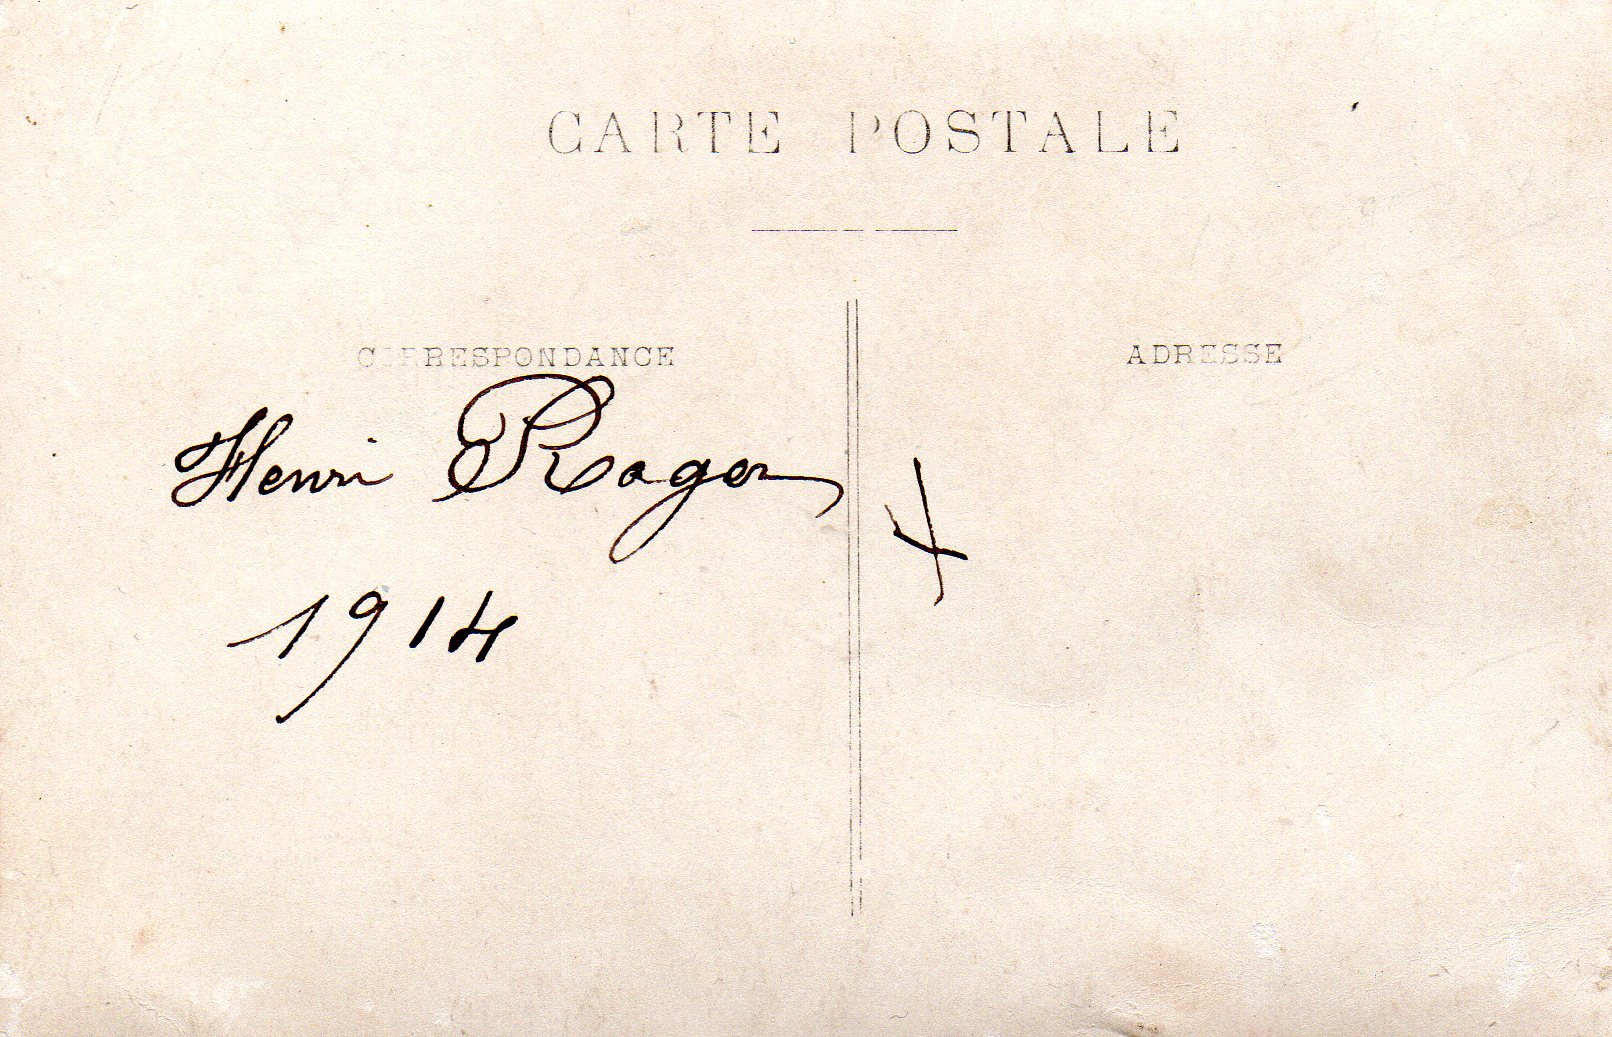 CARTE POSTALE
CORRESPONDANCE
ADRESSE
Henri Rager
1914